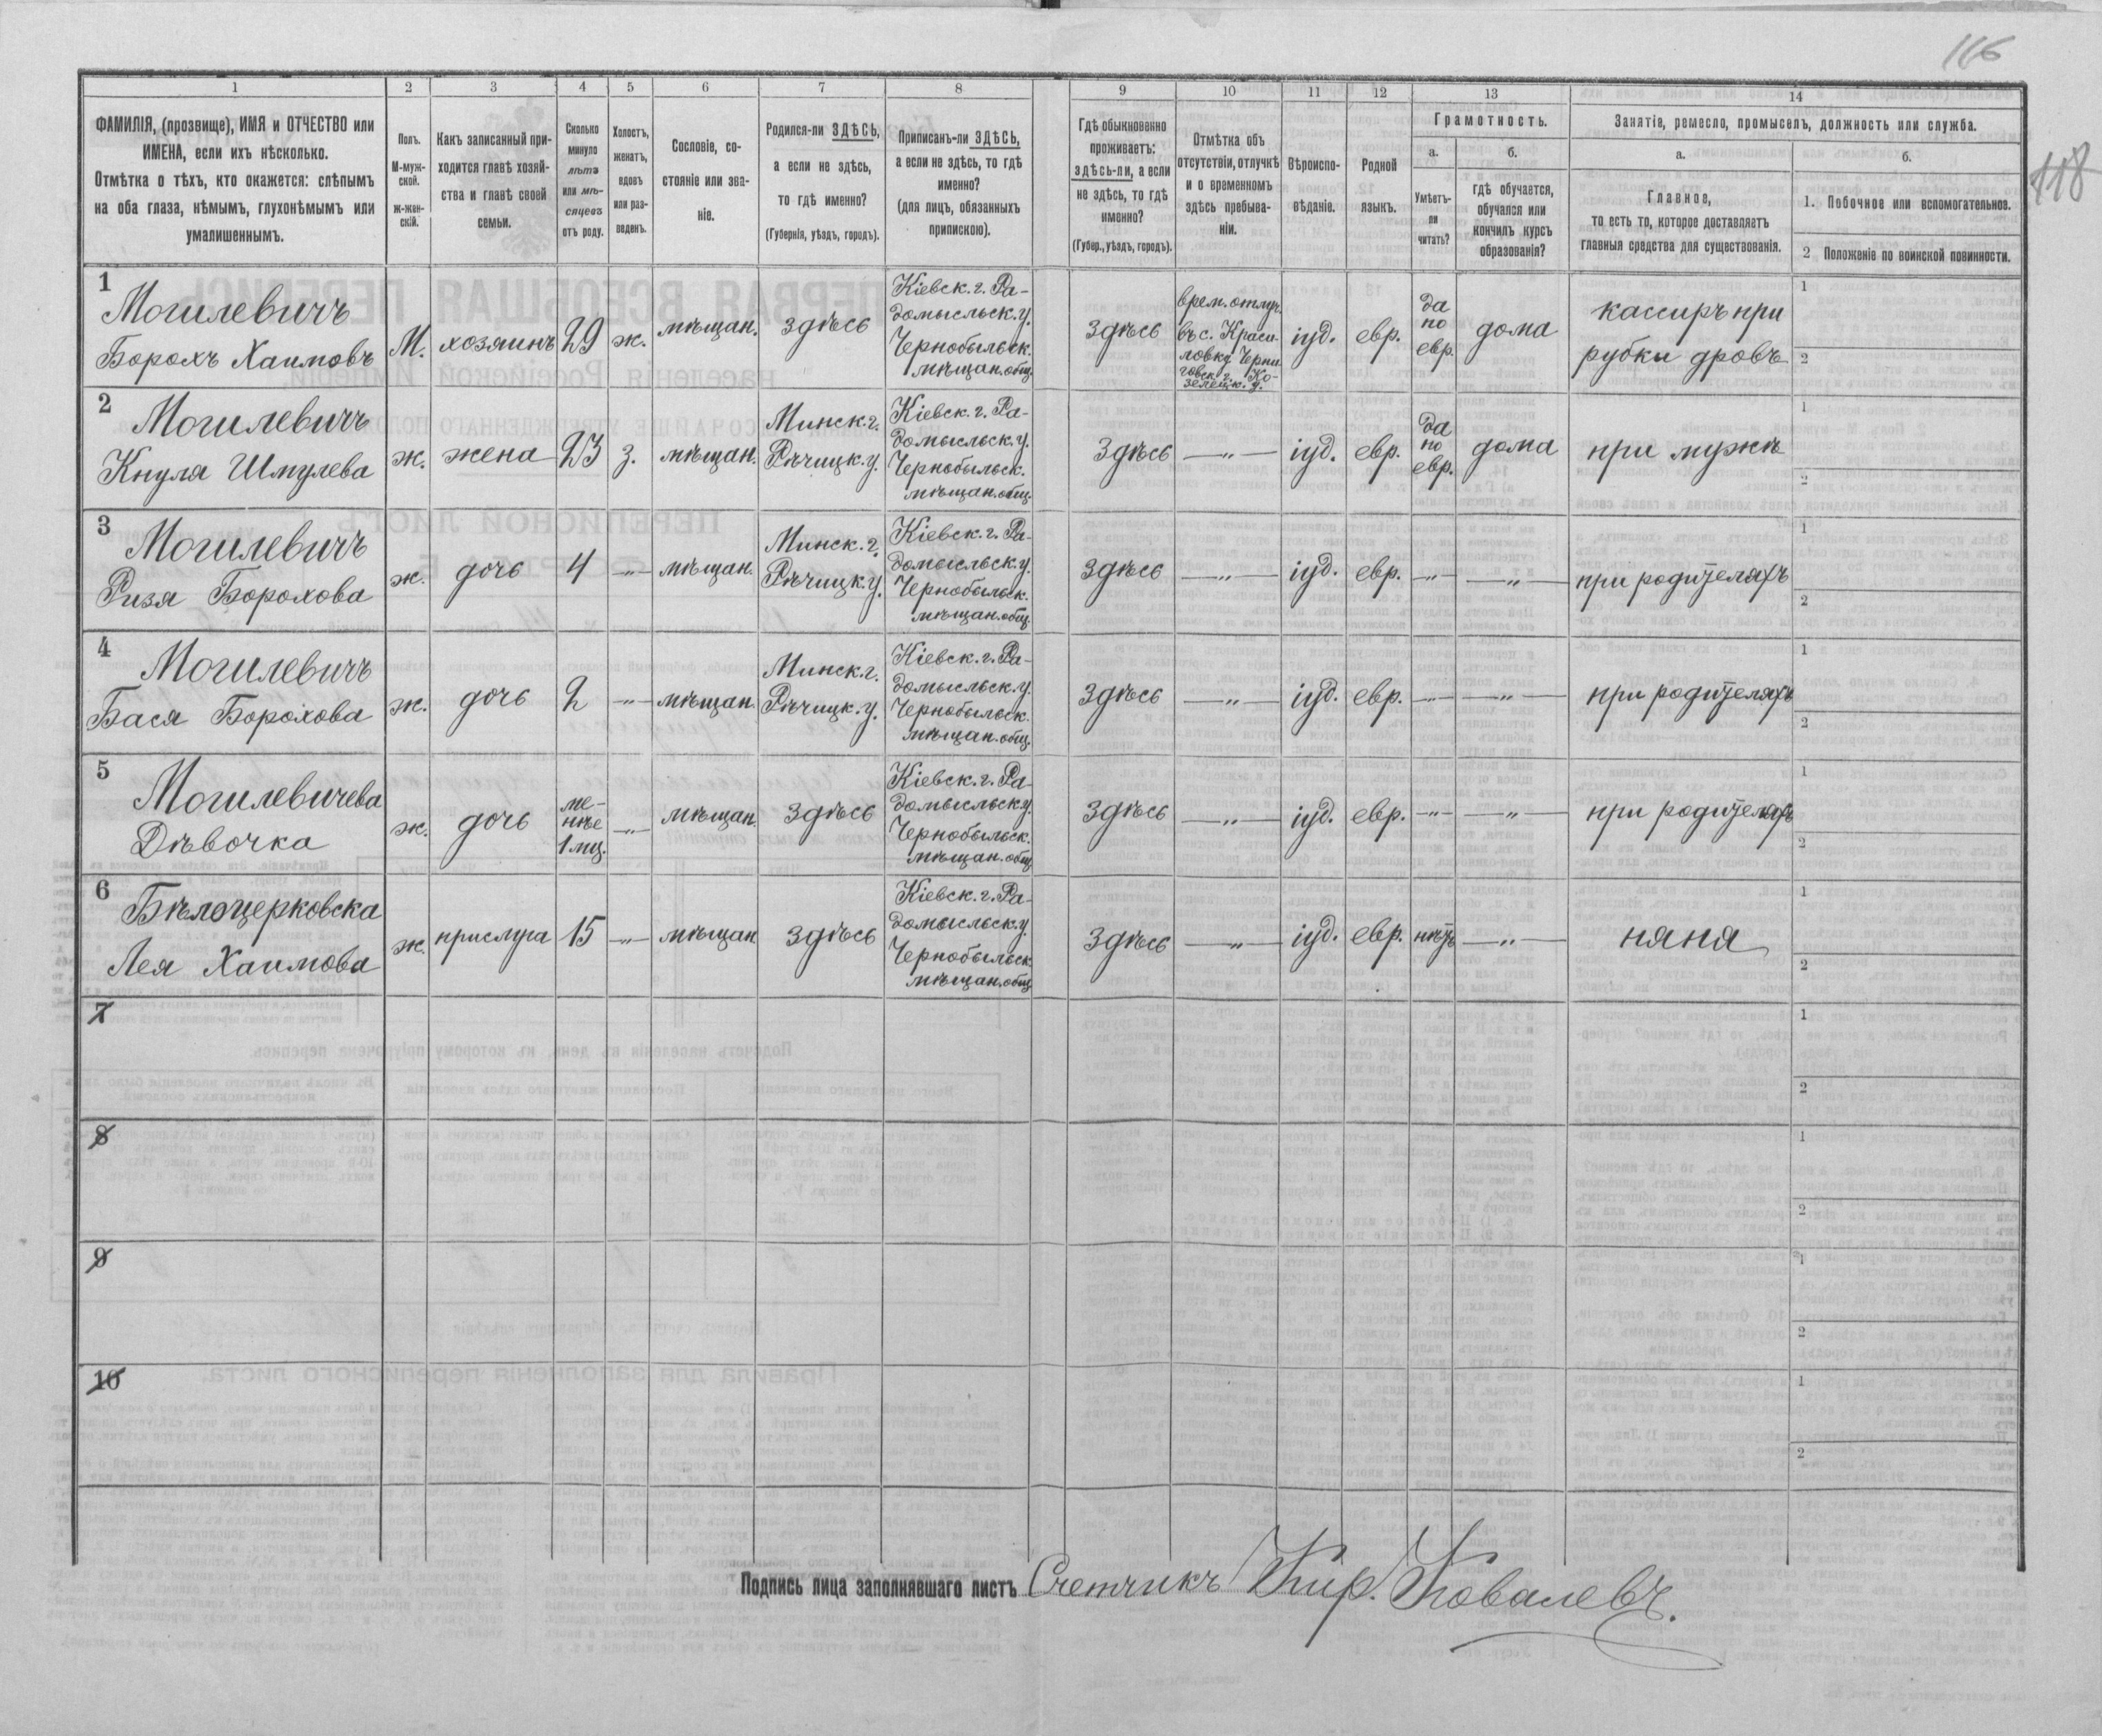 116
118
1
2
3
4
5
6
7
8
9
10
11
12
13
14
ФАМИЛІЯ, (прозвище), ИМЯ и ОТЧЕСТВО или
ИМЕНА, если ихъ нѣсколько.
Отмѣтка о тѣхъ, кто окажется: слѣпымъ
на оба глаза, нѣмымъ, глухонѣмымъ или
умалишеннымъ.
Полъ.
М-муж-
ской.
Ж-жен-
скій.
Какъ записанный при-
ходится главѣ хозяй-
ства и главѣ своей
семьи.
Сколько
минуло
лѣтъ
или мѣ-
сяцевъ
отъ роду.
Холостъ,
женатъ,
вдовъ
или раз-
веденъ.
Сословіе, со-
стояніе или зва-
ніе.
Родился-ли ЗДѢСЬ,
а если не здѣсь,
то гдѣ именно?
(Губернія, уѣздъ, городъ).
Приписанъ-ли ЗДѢСЬ,
а если не здѣсь, то гдѣ
именно?
(для лицъ, обязанныхъ
припискою).
Гдѣ обыкновенно
проживаетъ:
здѣсь-ли, а если
не здѣсь, то гдѣ
именно?
(Губер., уѣздъ, городъ).
Отмѣтка объ
отсутствіи, отлучкѣ
и о временномъ
здѣсь пребыва-
ніи.
Вѣроиспо-
вѣданіе.
Родной
языкъ.
Грамотность.
а.
Умѣетъ-
ли
читать?
б.
гдѣ обучается,
обучался или
кончилъ курсъ
образованія?
Занятіе, ремесло, промыселъ, должность или служба.
а.
Главное,
то есть то, которое доставляетъ
главныя средства для существованія.
б.
1. Побочное или вспомогательное.
2 Положеніе по воинской повинности.
1
Могилевичъ
Борохъ Хаимовъ
М.
хозяинъ
29
ж.
мѣщан.
здѣсь
Кіевск. г. Ра-
домысльск. у.
Чернобыльск.
мѣщан. общ.
здѣсь
врем. отлуч.
въ с. Краси-
ловку Черни-
говск. г. Ко-
зелецк. у.
іуд.
евр.
да
по
евр.
дома
кассиръ при
рубки дровъ
1
2
2
Могилевичъ
Кнуля Шмулева
ж.
жена
23
з.
мѣщан.
Минск. г.
Рѣчицк. у.
Кіевск. г. Ра-
домысльск. у.
Чернобыльск.
мѣщан. общ.
здѣсь
— „ —
іуд.
евр.
да
по
евр.
дома
при мужѣ
1
2
3
Могилевичъ
Ризя Борохова
ж.
дочь
4
— „ —
мѣщан.
Минск. г.
Рѣчицк. у.
Кіевск. г. Ра-
домысльск. у.
Чернобыльск.
мѣщан. общ.
здѣсь
— „ —
іуд.
евр.
— „ —
— „ —
при родителяхъ
1
2
4
Могилевичъ
Бася Борохова
ж.
дочь
2
— „ —
мѣщан.
Минск. г.
Рѣчицк. у.
Кіевск. г. Ра-
домысльск. у.
Чернобыльск.
мѣщан. общ.
здѣсь
— „ —
іуд.
евр.
— „ —
— „ —
при родителяхъ
1
2
5
Могилевичева
Дѣвочка
ж.
дочь
ме-
нѣе
1 мц.
— „ —
мѣщан.
здѣсь
Кіевск. г. Ра-
домысльск. у.
Чернобыльск.
мѣщан. общ.
здѣсь
— „ —
іуд.
евр.
— „ —
— „ —
при родителяхъ
1
2
6
Бѣлоцерковска
Лея Хаимова
ж.
прислуга
15
— „ —
мѣщан.
здѣсь
Кіевск. г. Ра-
домысльск. у.
Чернобыльск.
мѣщан. общ.
здѣсь
— „ —
іуд.
евр.
нѣтъ
— „ —
няня
1
2
7
1
2
8
1
2
9
1
2
10
1
2
Подпись лица заполнявшаго листъ Счетчикъ Кир. Ковалевъ.